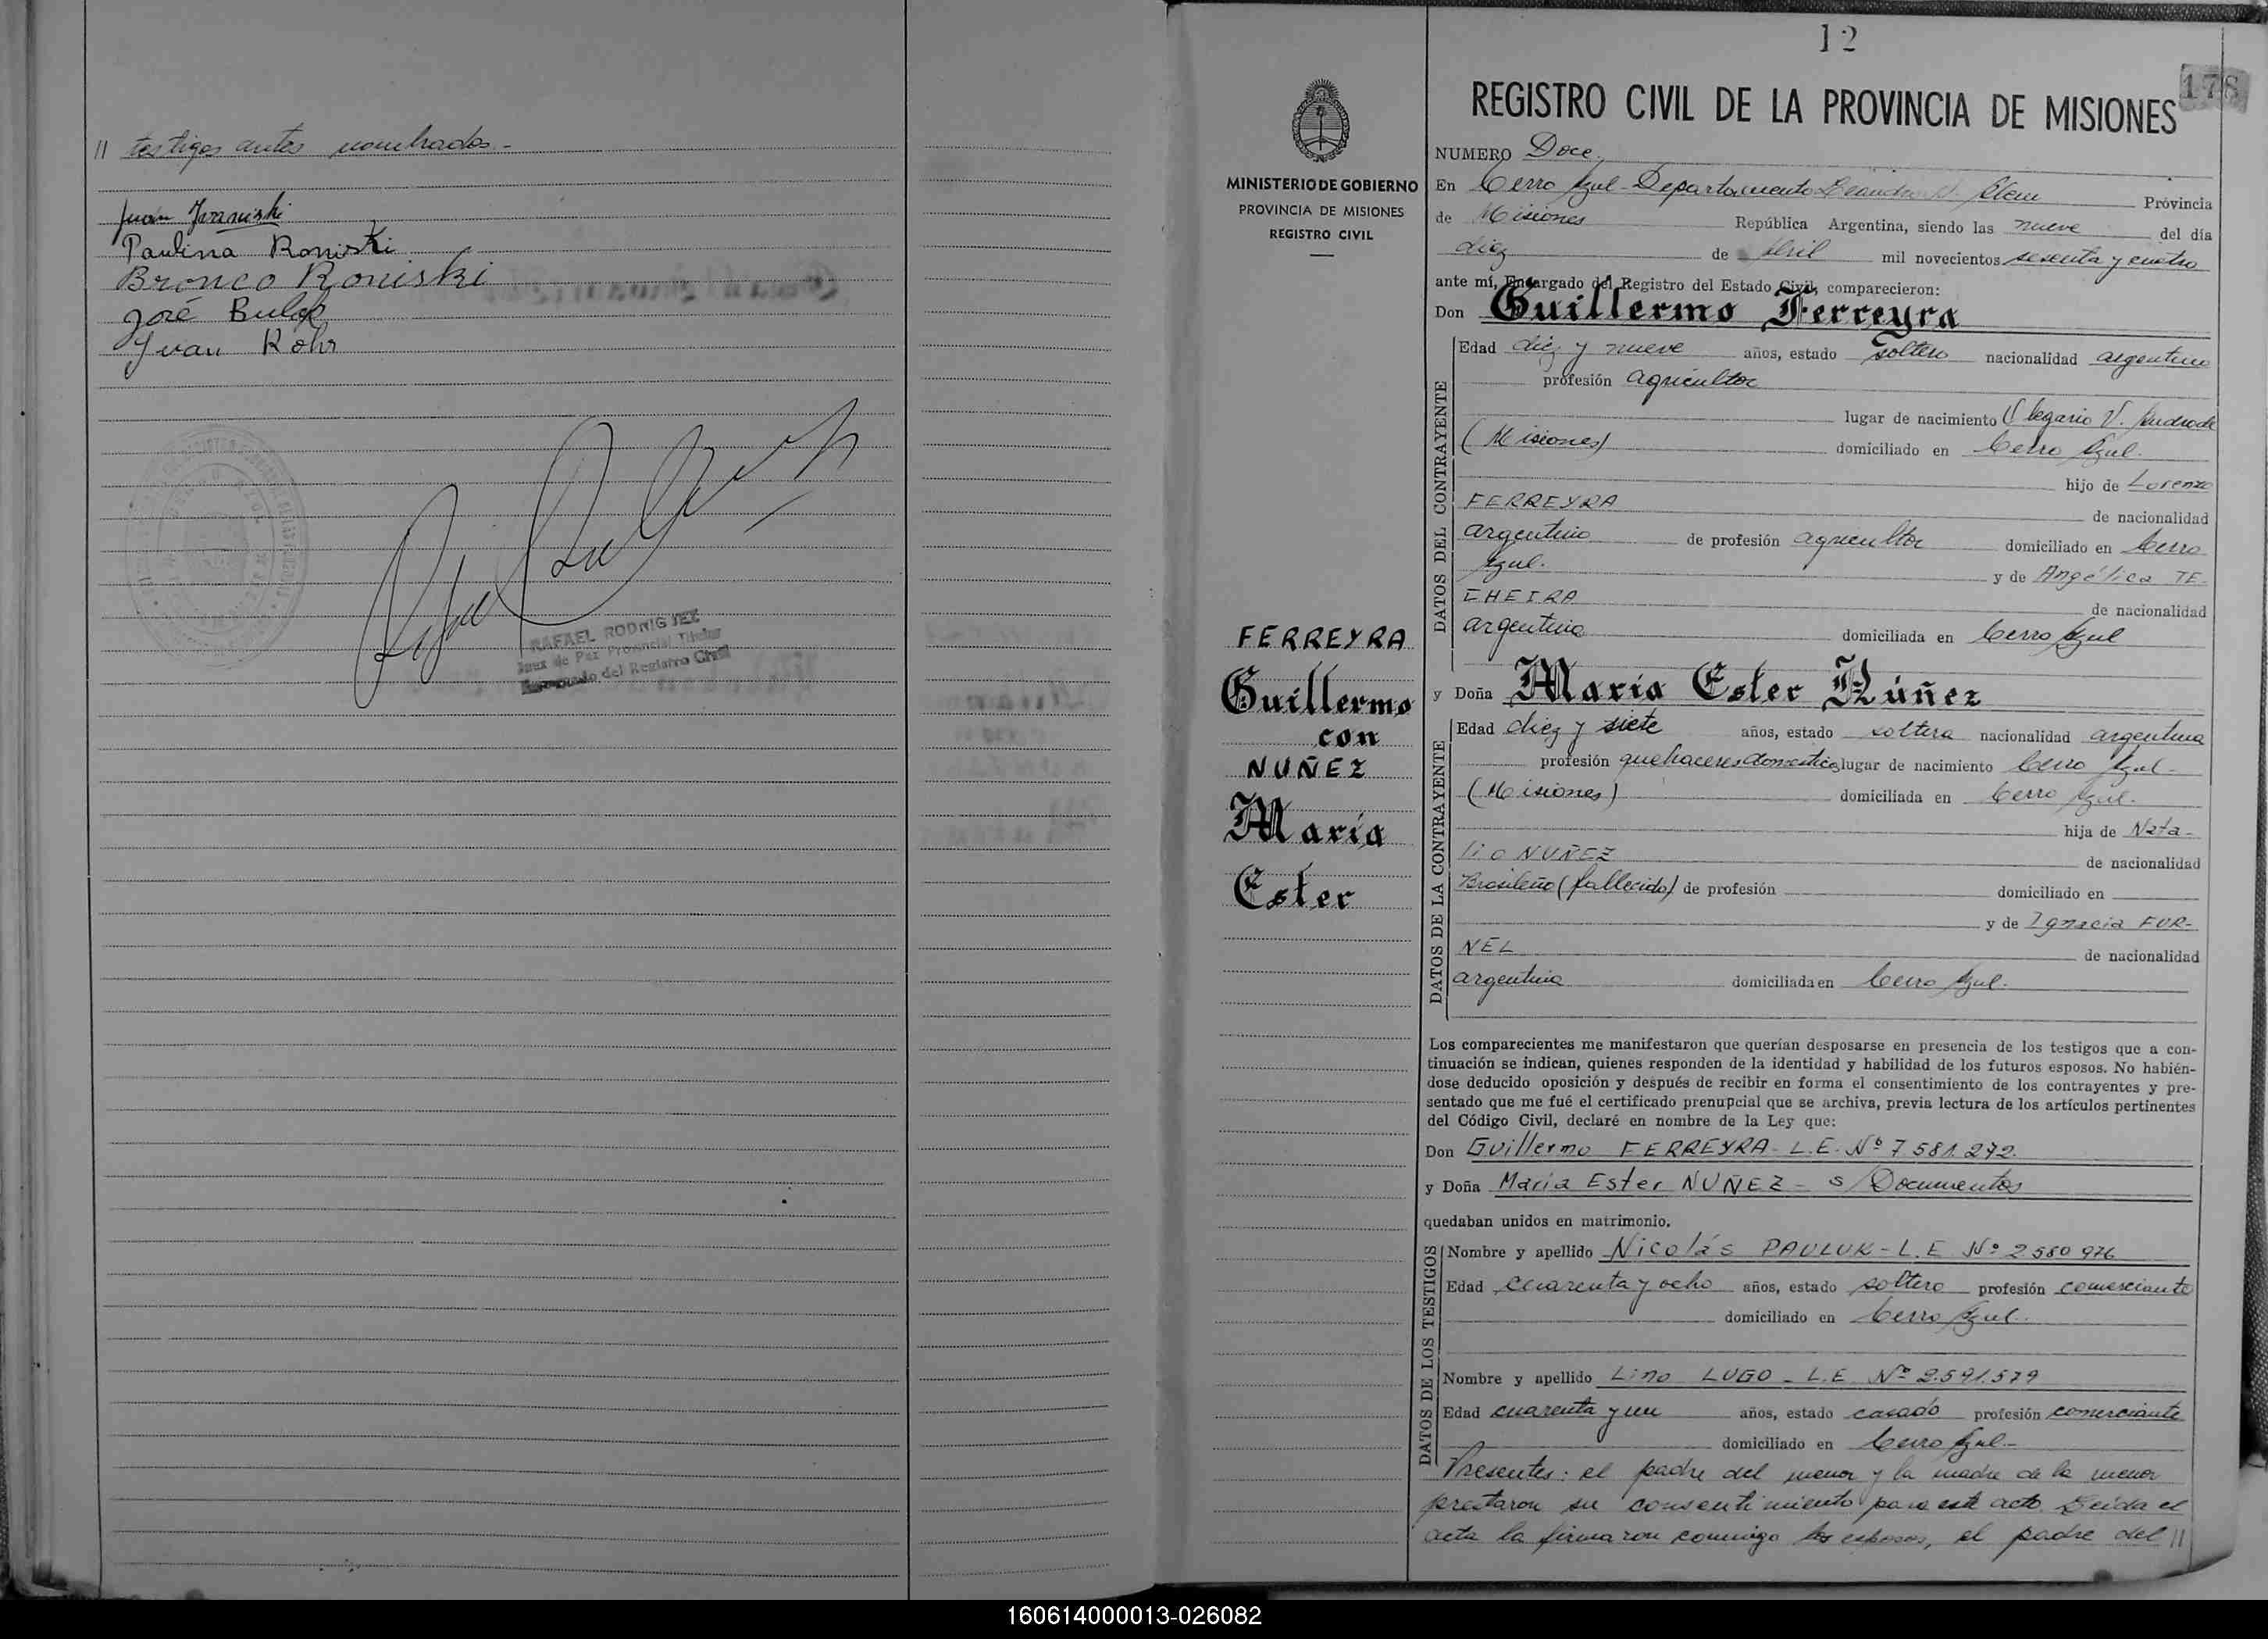 // testigos antes nombrados.-
Juan
Paulina Roniski
Bronco Roniski
José Bulak
Juan Rohr
RAFAEL RODRIGUEZ
Juez de Paz Provincial Titular
Encargado del Registro Civil
12
178
REGISTRO CIVIL DE LA PROVINCIA DE MISIONES
MINISTERIO DE GOBIERNO
PROVINCIA DE MISIONES
REGISTRO CIVIL
FERREYRA
Guillermo
con
NUÑEZ
María
Ester
NUMERO Doce.
En Cerro Azul - Departamento Leandro N. Alem Provincia
de Misiones República Argentina, siendo las nueve del día
diez de Abril mil novecientos sesenta y cuatro
ante mí, Encargado del Registro del Estado Civil, comparecieron:
Don Guillermo Ferreyra
DATOS DEL CONTRAYENTE
Edad diez y nueve años, estado soltero nacionalidad argentino
profesión agricultor
lugar de nacimiento Olegario V. Andrade
(Misiones) domiciliado en Cerro Azul.
hijo de Lorenzo
FERREYRA de nacionalidad
argentino de profesión agricultor domiciliado en Cerro
Azul. y de Angélica TE-
CHEIRA de nacionalidad
argentina domiciliada en Cerro Azul
y Doña María Ester Núñez
DATOS DE LA CONTRAYENTE
Edad diez y siete años, estado soltera nacionalidad argentina
profesión quehaceres domestico lugar de nacimiento Cerro Azul.-
(Misiones) domiciliada en Cerro Azul.
hija de Nata-
lio NUÑEZ de nacionalidad
Brasileño (fallecido) de profesión domiciliado en
y de Ignacia FUR-
NEL de nacionalidad
argentina domiciliada en Cerro Azul.
Los comparecientes me manifestaron que querían desposarse en presencia de los testigos que a con-
tinuación se indican, quienes responden de la identidad y habilidad de los futuros esposos. No habién-
dose deducido oposición y después de recibir en forma el consentimiento de los contrayentes y pre-
sentado que me fué el certificado prenupcial que se archiva, previa lectura de los artículos pertinentes
del Código Civil, declaré en nombre de la Ley que:
Don Guillermo FERREYRA - L.E. Nº 7.581.272.
y Doña María Ester NUÑEZ - s/Documentos
quedaban unidos en matrimonio.
DATOS DE LOS TESTIGOS
Nombre y apellido Nicolás PAULUK - L.E. Nº 2580976
Edad cuarenta y ocho años, estado soltero profesión comerciante
domiciliado en Cerro Azul.
Nombre y apellido Lino LUGO - L.E. Nº 2.591.579
Edad cuarenta y un años, estado casado profesión comerciante
domiciliado en Cerro Azul.-
Presentes: el padre del menor y la madre de la menor
prestaron su consentimiento para este acto Leída el
acta la firmaron conmigo los esposos, el padre del //
160614000013-026082